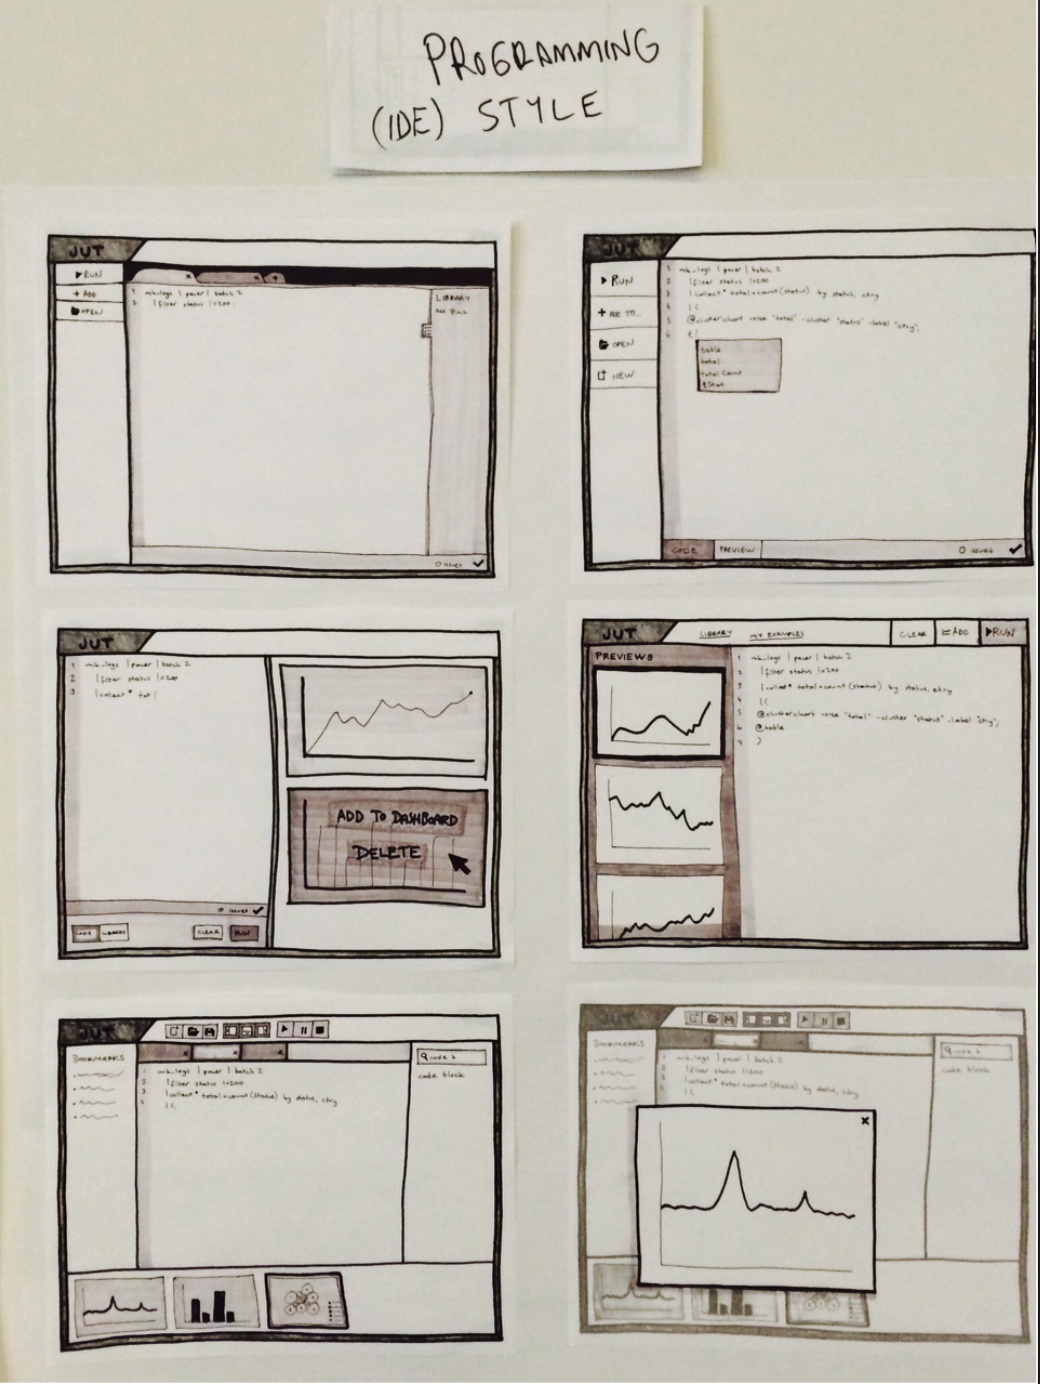 PROGRAMMING
(IDE) STYLE
JUT
▶ RUN
+ ADD
OPEN
1 | pacer | batch 2
2 | filter status != 200
LIBRARY
Add Block
0 issues ✔
JUT
▶ RUN
+ ADD TO...
OPEN
NEW
1 | pacer | batch 2
2 | filter status != 200
3 | collect * total = count (status) by status, ctry
4 | (
5 @clusterchart -size "total" -cluster "status" -label "ctry";
6 t |
table
total
total Count
tStat
CODE PREVIEW
0 issues ✔
JUT
1 | pacer | batch 2
2 | filter status != 200
3 | collect * tot |
ADD TO DASHBOARD
DELETE
0 issues ✔
CODE LIBRARY CLEAR RUN
JUT
LIBRARY MY EXAMPLES CLEAR ADD ▶RUN
PREVIEWS
1 | pacer | batch 2
2 | filter status != 200
3 | collect * total = count (status) by status, ctry
4 | (
5 @clusterchart -size "total" -cluster "status" -label "ctry";
6 @table
7 )
JUT
BOOKMARKS
1 | pacer | batch 2
2 | filter status != 200
3 | collect * total = count (status) by status, ctry
4 | (
code b
code block
JUT
BOOKMARKS
1 | pacer | batch 2
2 | filter status != 200
3 | collect * total = count (status) by status, ctry
4 | (
code b
code block
x